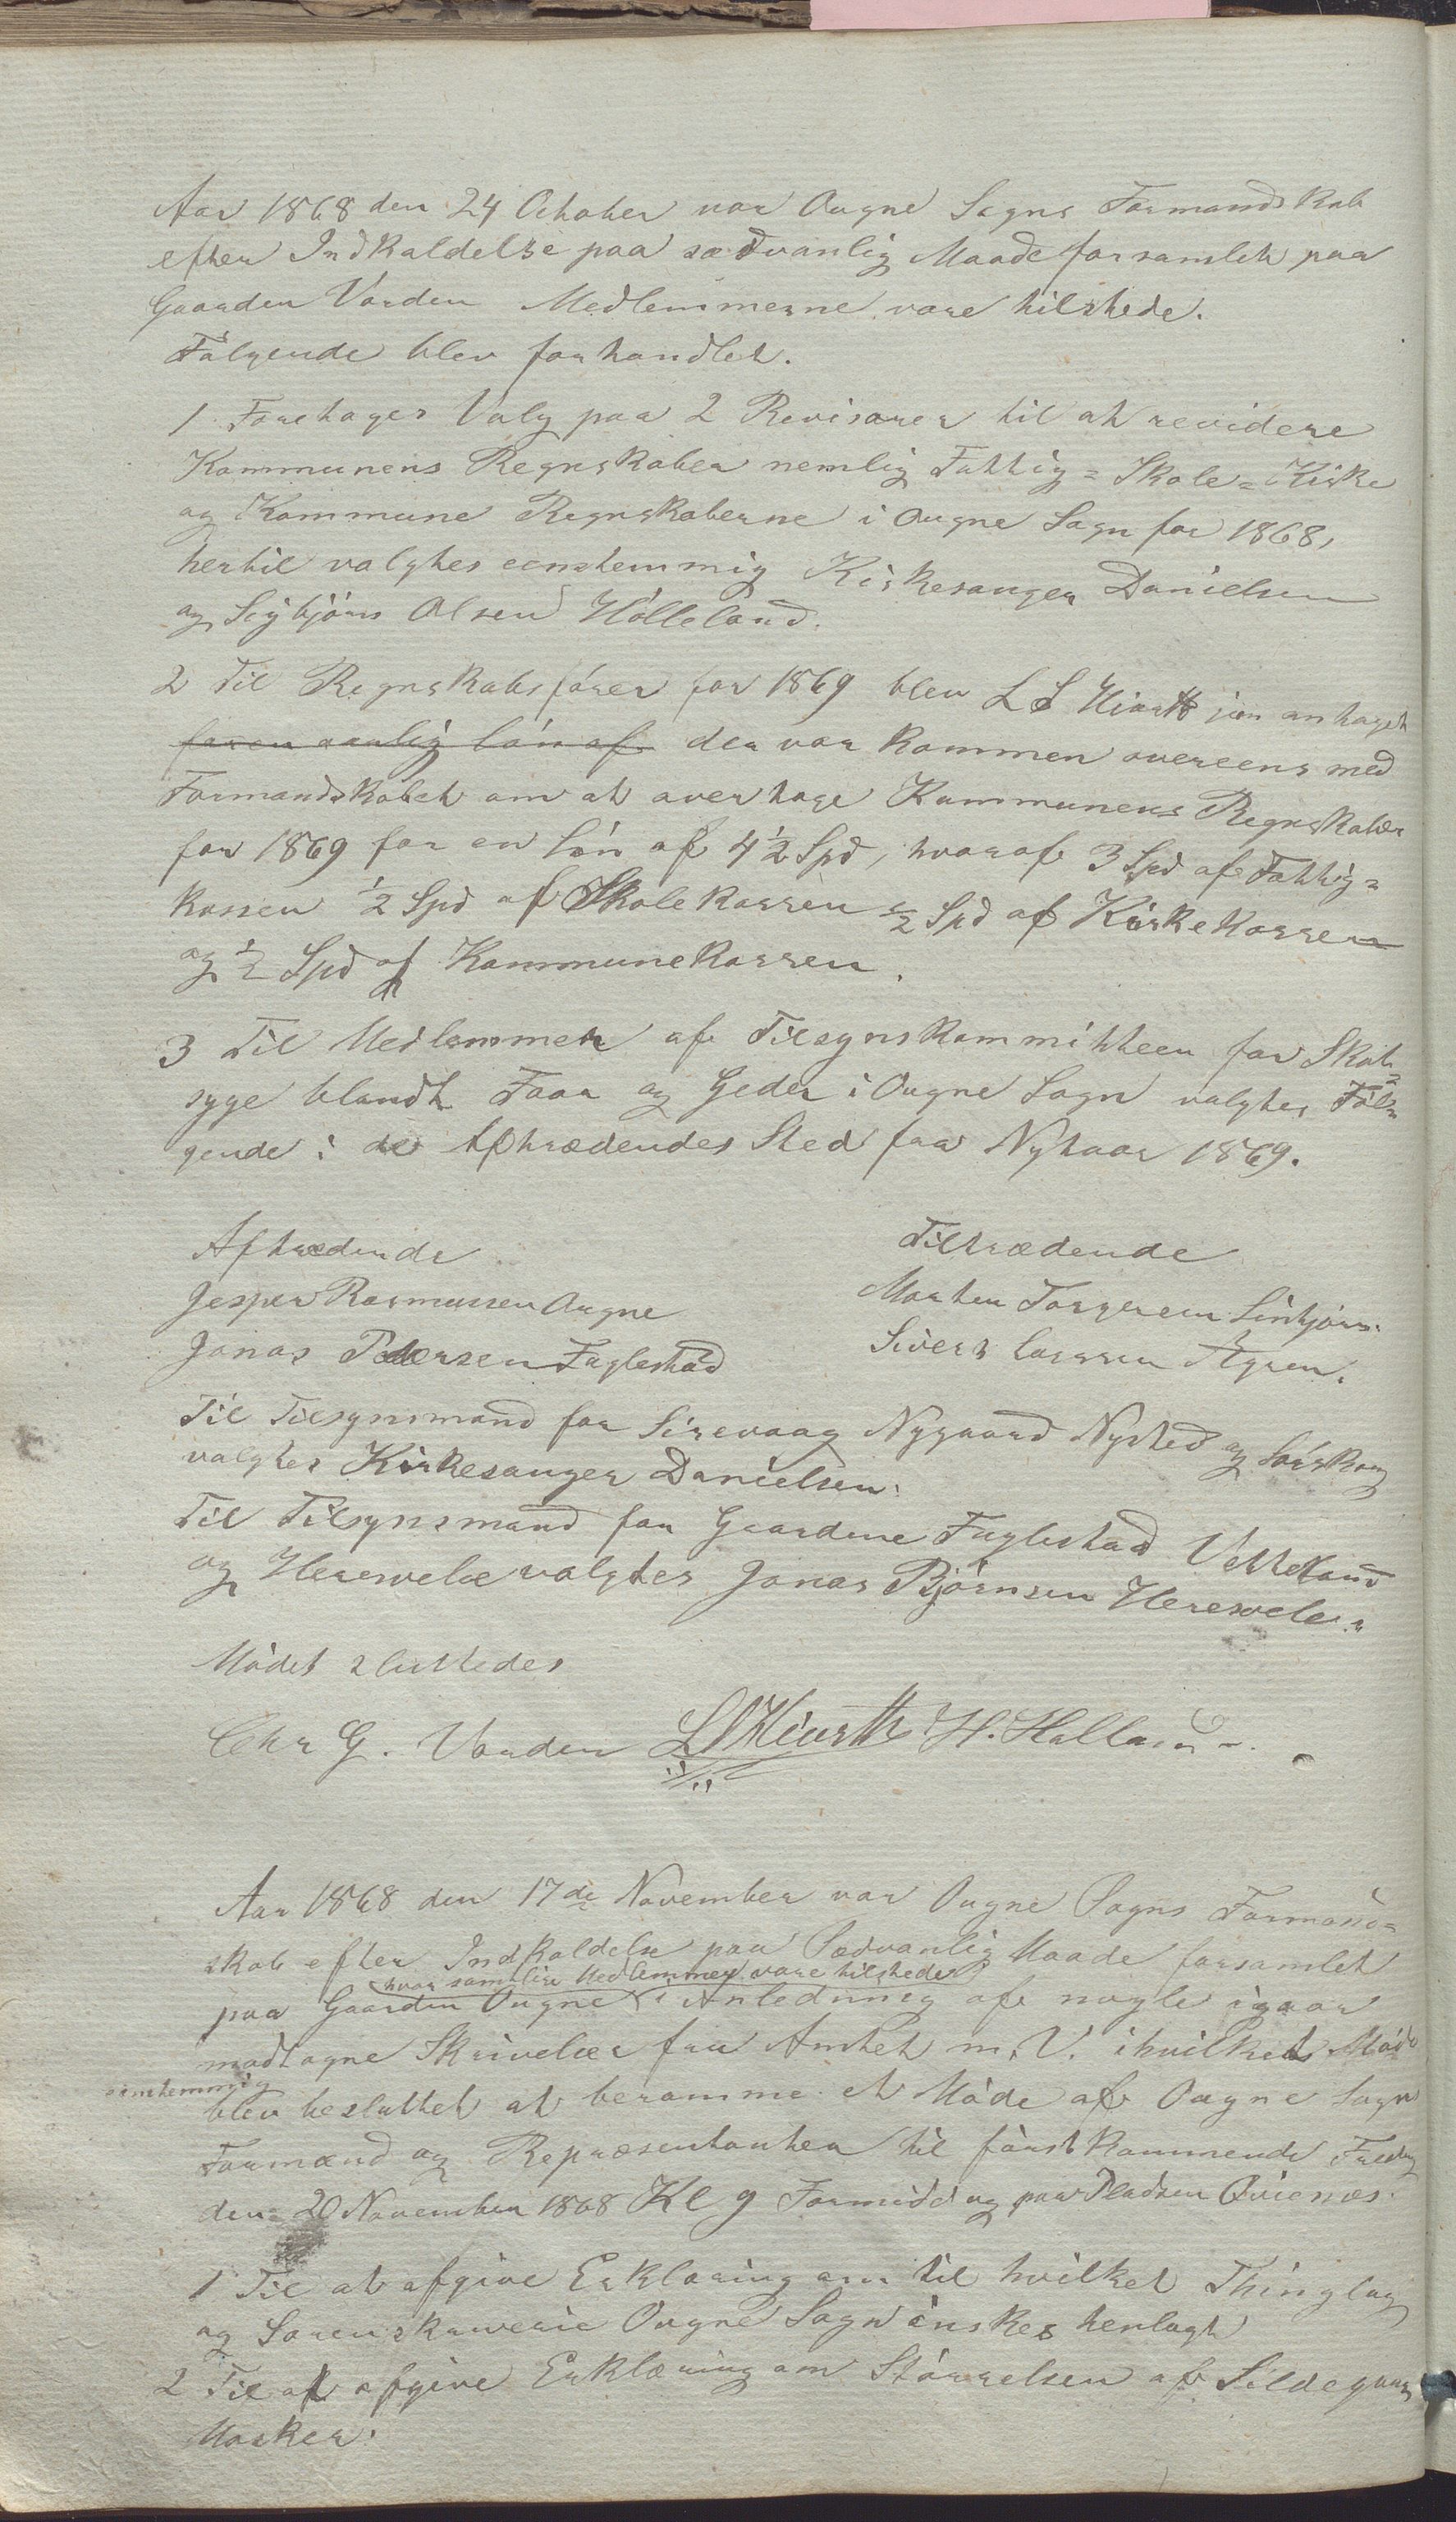 Aar 1868 den 24 October var Ougne Sogns Formandskab
efter Indkaldelse paa sædvanlig Maade forsamlet paa
Gaarden Varden Medlemmerne vare tilstede.
Følgende blev forhandlet.
1 Foretages Valg paa 2 Revisorer til at revidere
Kommunens Regnskaber nemlig Fattig= Skole= Kirke
og Kommune Regnskaberne i Ougne Sogn for 1868,
hertil valgtes eenstemmig Kirkesanger Danielsen
og Sigbjørn Olsen Hölleland.
2 Til Regnskabsfører for 1869 blev L S Hiorth jun antaget
for en aarlig lön af der var kommen overeens med
Formandskabet om at overtage Kommunens Regnskaber
for 1869 for en lön af 4 1/2 Spd, hvoraf 3 Spd af Fattig=
kassen 1/2 Spd af Skolekassen 1/2 Spd af Kirkekassen
og 1/2 Spd af Kommunekassen.
3 Til Medlemmer af Tilsynskommitteen for Skab=
syge blandt Faar og Geder i Ougne Sogn valgtes Föl=
gende i de Aftrædendes Sted fra Nytaar 1869.
Aftrædende
Tiltrædende
Jesper Rasmussen Ougne
Morten Torgersen Sinkjörn.
Jonas Pedersen Fuglestad
Sivert Larssen
Til Tilsynsmand for Sirevaag Nygaard Nysted og
valgtes Kirkesanger Danielsen.
Til Tilsynsmand for Gaardene Fuglestad Vetteland
og Herewele valgtes Jonas Björnsen Herewele.
Mödet sluttedes
Chr G. Varden L S Hiorth H. Helland
Aar 1868 den 17de November var Ougne Sogns Formand=
skab efter Indkaldelse paa Sædvanlig Maade forsamlet
hvor samtlige Medlemmer vare tilstede
paa Gaarden Ougne i Anledning af nogle igaar
modtagne Skrivelser fra Amtet m. V. i hvilket Möde
eenstemmig
blev besluttet at beramme et Möde af Ougne Sogn
Formænd og Repræsentanter til förstkommende Fredag
den 20 November 1868 Kl 9 Formiddag paa Pladsen Qvienæs.
1 Til at afgive Erklæring om til hvilket Thinglag
og Sorenskriverie Ougne Sogn önskes henlagt
2 Til at afgive Erklæring om Störrelsen af Sildegarns
Masker.